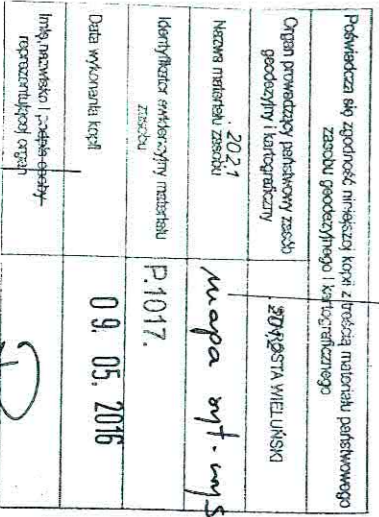 Poświadcza się zgodność niniejszej kopii z treścią materiału państwowego
zasobu geodezyjnego i kartograficznego
Organ prowadzący państwowy zasób
geodezyjny i kartograficzny
STAROSTA WIELUŃSKI
Nazwa materiału zasobu
2021
mapa syt.-wys
Identyfikator ewidencyjny materiału
zasobu
P.1017.
Data wykonania kopii
09. 05. 2016
Imię, nazwisko i podpis osoby
reprezentującej organ